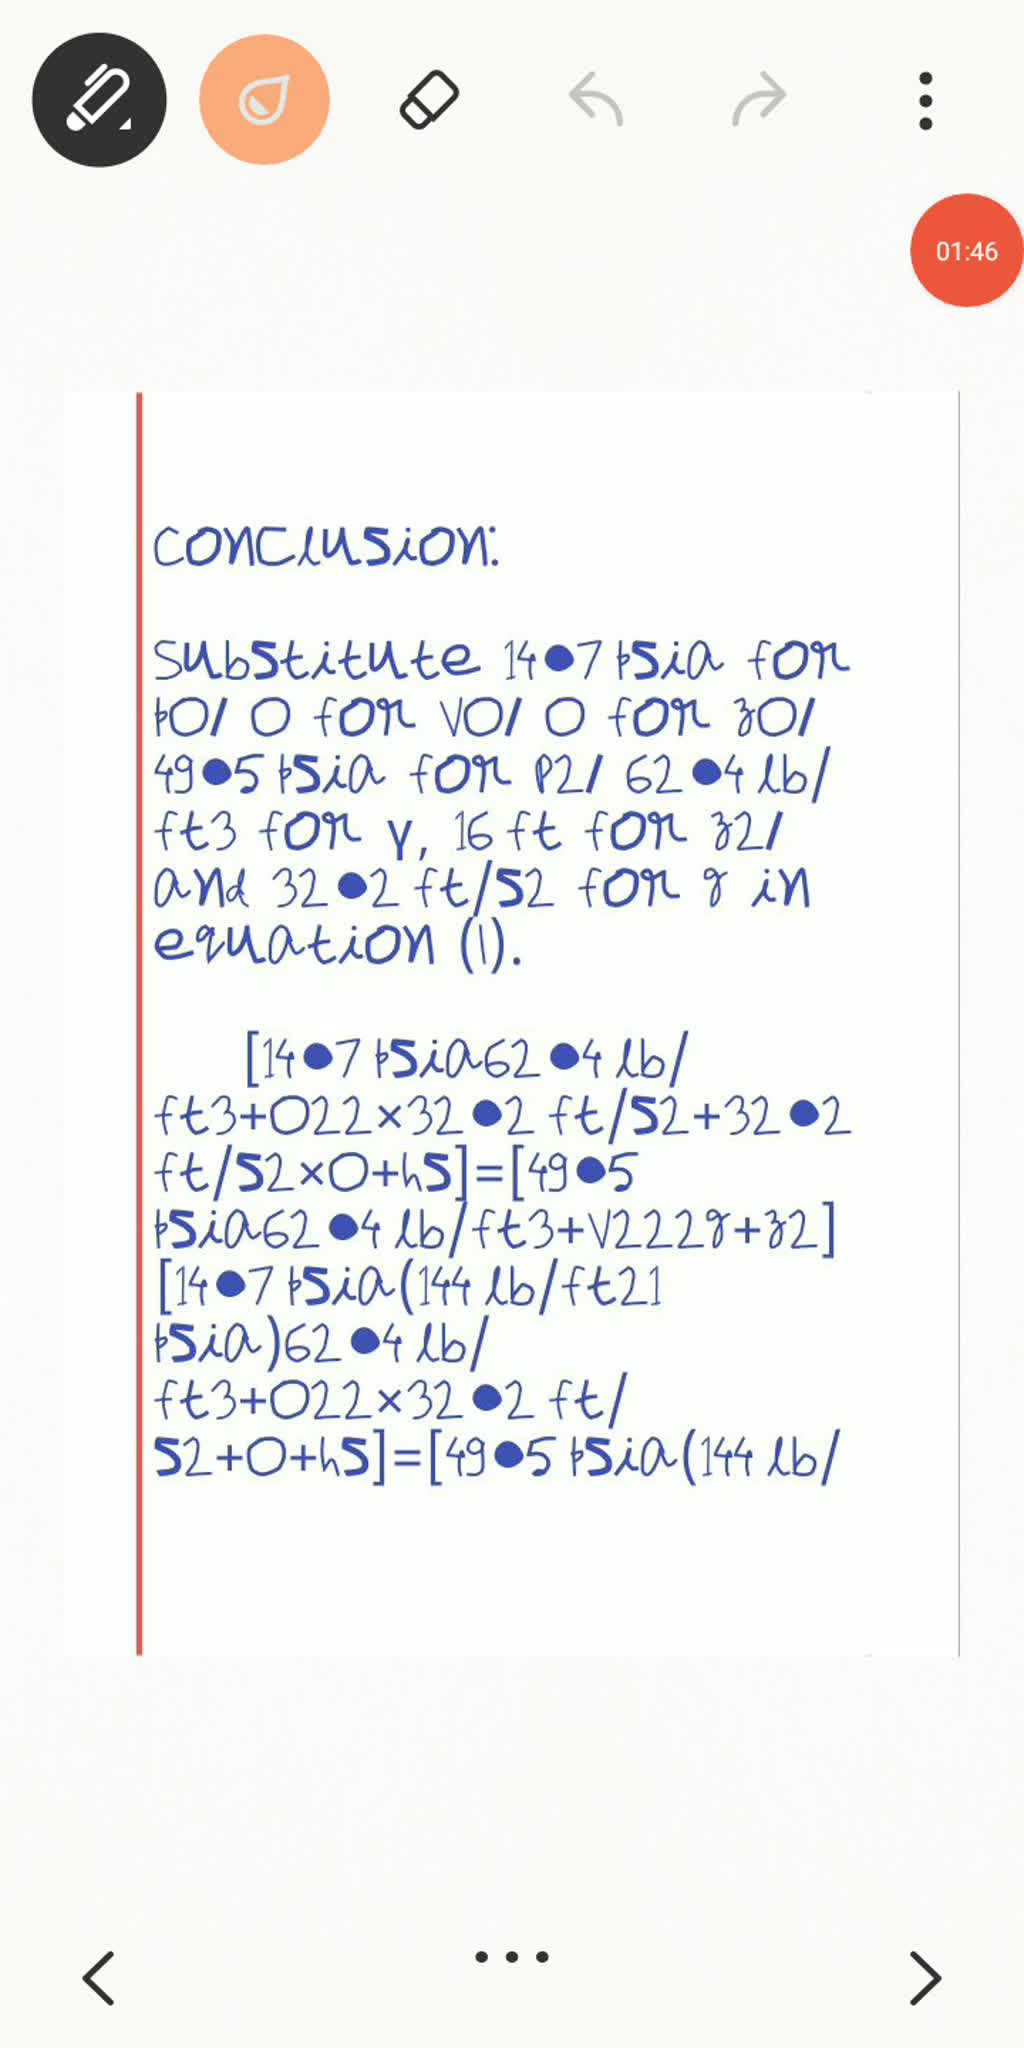 01:46
Conclusion:
Substitute 14●7 psia for
p0/ 0 for V0/ 0 for z0/
49●5 psia for P2/ 62●4 lb/
ft3 for γ, 16 ft for z2/
and 32●2 ft/s2 for g in
equation (1).
[14●7 psia62●4 lb/
ft3+022×32●2 ft/s2+32●2
ft/s2×0+hs]=[49●5
psia62●4 lb/ft3+V222g+z2]
[14●7 psia(144 lb/ft21
psia)62●4 lb/
ft3+022×32●2 ft/
s2+0+hs]=[49●5 psia(144 lb/